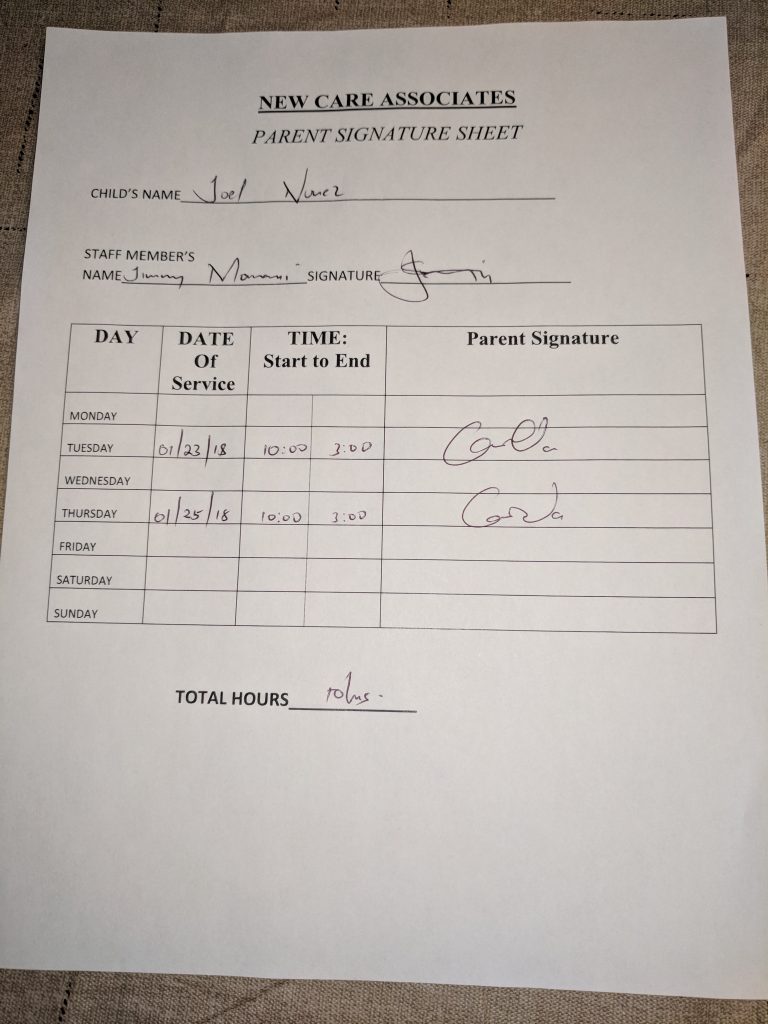 NEW CARE ASSOCIATES
PARENT SIGNATURE SHEET
CHILD'S NAME Joel Nunez
STAFF MEMBER'S
NAME Jimmy SIGNATURE
DAY DATE Of Service TIME: Start to End Parent Signature
MONDAY
TUESDAY 01/23/18 10:00 3:00 Carla
WEDNESDAY
THURSDAY 01/25/18 10:00 3:00 Carla
FRIDAY
SATURDAY
SUNDAY
TOTAL HOURS 10hrs.